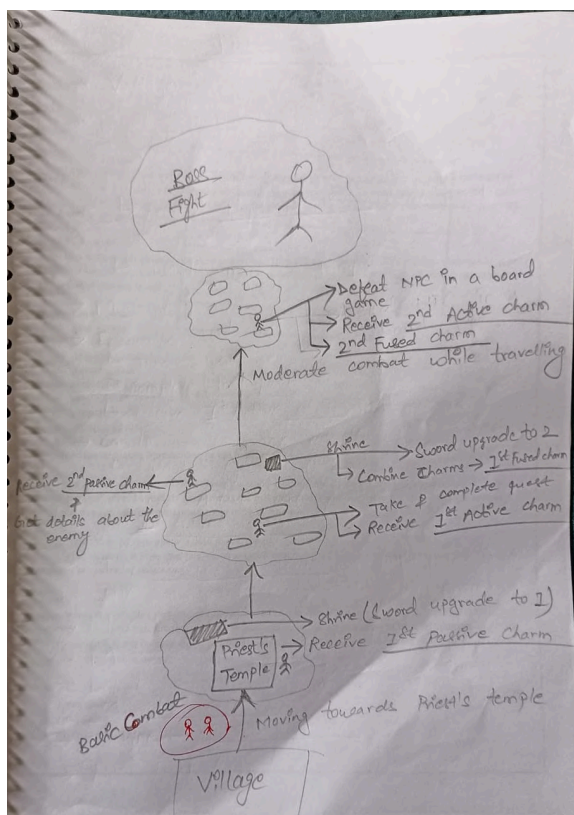 Boss
Fight
Defeat NPC in a board
game
Receive 2nd Active charm
2nd Fused charm
Moderate combat while travelling
Shrine
Sword upgrade to 2
Combine Charms → 1st Fused charm
Receive 2nd passive charm
&
Get details about the
enemy
Take & complete quest
Receive 1st Active charm
Shrine (Sword upgrade to 1)
Priest's
Temple
Receive 1st Passive Charm
Basic Combat
Moving towards Priest's temple
Village